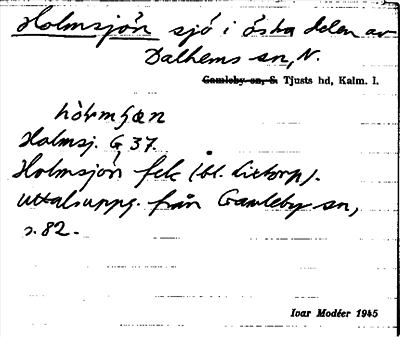 Holmsjön sjö i östra delen av
Dalhems sn, N.
Gamleby sn, S. Tjusts hd, Kalm. l.
Holmsj. G 37.
Holmsjön fek (bl. Åietorp).
uttalsuppg. från Gamleby sn,
s. 82.
Ivar Modéer 1945